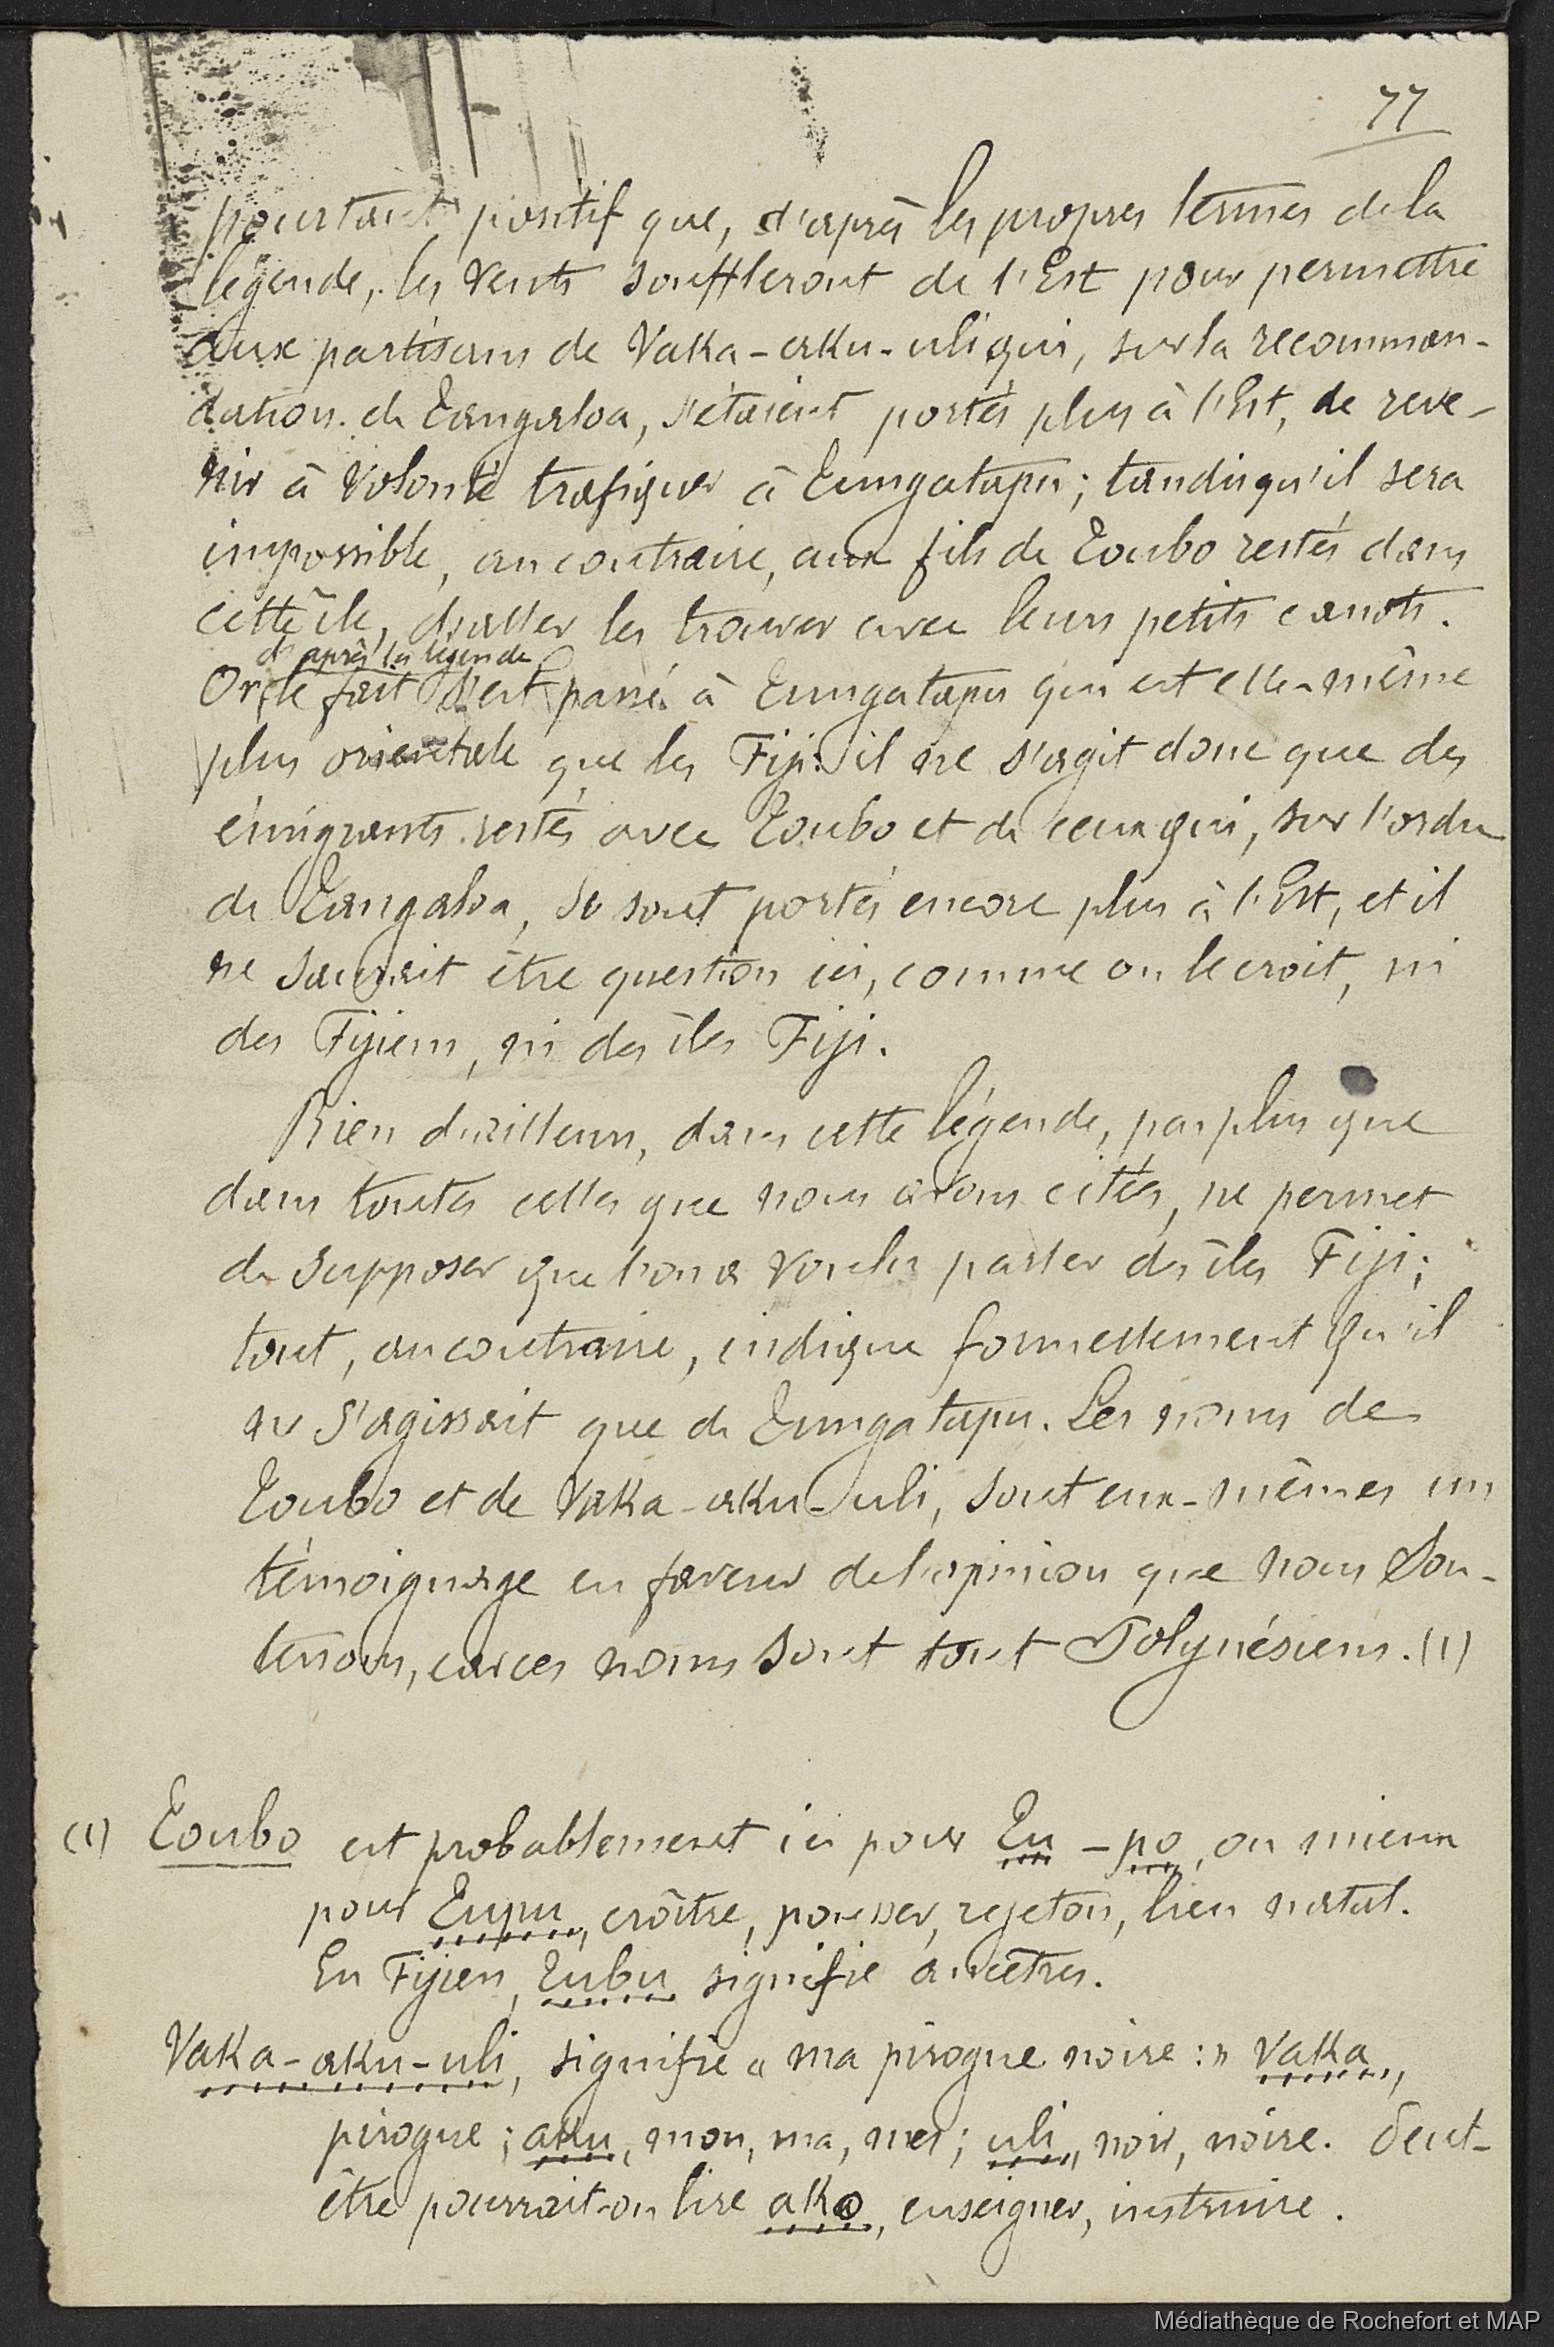 77
pourtant positif que, d'après les propres termes de la
légende, les vents souffleront de l'Est pour permettre
aux partisans de Vaka-aku-uli qui, sur la recomman-
dation de Tangaloa, s'étaient portés plus à l'Est, de reve-
nir à volonté trafiquer à Tungatapu; tandis qu'il sera
impossible, au contraire, aux fils de Toubo restés dans
cette île, d'aller les trouver avec leurs petits canots.
d'après la légende
Or, le fait s'est passé à Tungatapu qui est elle-même
plus orientale que les Fiji: il ne s'agit donc que des
émigrants restés avec Toubo et de ceux qui, sur l'ordre
de Tangaloa, se sont portés encore plus à l'Est, et il
ne saurait être question ici, comme on le croit, ni
des Fijiens, ni des îles Fiji.
Rien d'ailleurs, dans cette légende, pas plus que
dans toutes celles que nous avons citées, ne permet
de supposer que l'on a voulu parler des îles Fiji;
tout, au contraire, indique formellement qu'il
ne s'agissait que de Tungatapu. Les noms de
Toubo et de Vaka-aku-uli, sont eux-mêmes un
témoignage en faveur de l'opinion que nous sou-
tenons, car ces noms sont tout Polynésiens. (1)
(1) Toubo est probablement ici pour Tu-po, ou mieux
pour Tupu, croître, pousser, rejeton, lieu natal.
En Fijien, Tubu signifie ancêtres.
Vaka-aku-uli, signifie « ma pirogue noire: » Vaka,
pirogue; aku, mon, ma, mes; uli, noir, noire. Peut-
être pourrait-on lire ako, enseigner, instruire.
Médiathèque de Rochefort et MAP